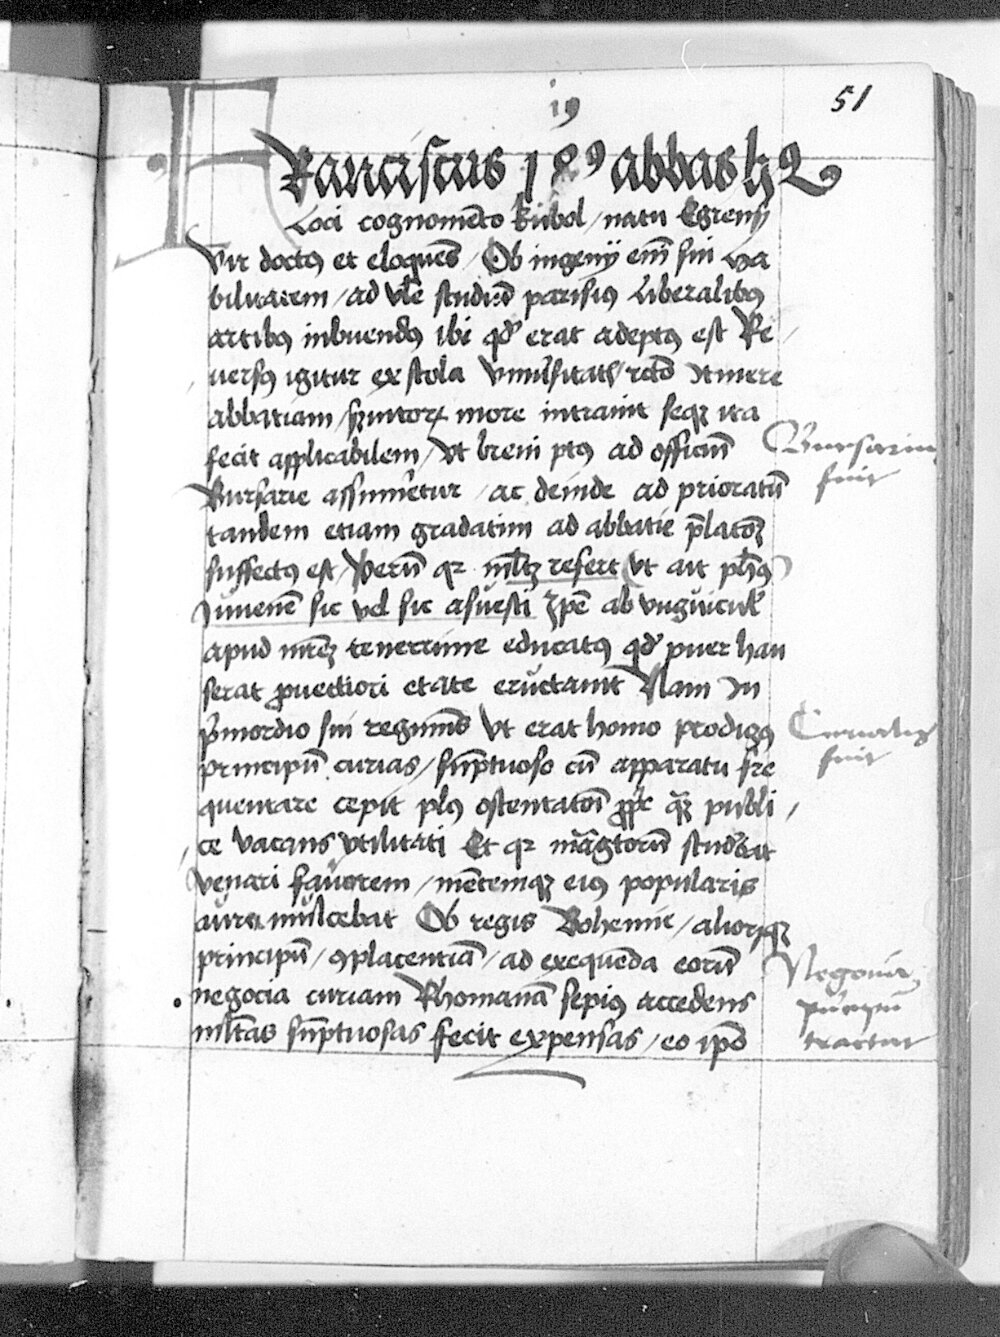 19
51
FRanciscus 189 abbas h9
Loci cognomēto kübel / natu Egreny
Vir doctꝯ et eloquēs / Ob ingenÿ em̄ sui
bilitatem / ad vl̄e studiū parisiꝰ Liberalibꝰ
artibꝰ inbuendꝰ ibi qd̕ erat adeptꝰ est Re
uersꝰ igitur ex scola vniūsitatꝭ / Itinere
abbatiam / more intrauit seqꝫ ita
fecit applicabilem / vt breui ptꝰ ad officiū
Bursarie assumēretur / ac deinde ad prioratū
tandem etiam gradatim ad abbatie p̄latoꝫ
suffectꝰ est / Verū qꝛ ml̄tꝫ refert (vt ait ph̄ꝰ)
Iuuenē sic vel sic asuesti ab vnguiculꝭ
apud mr̄eꝫ tenerrime educatꝰ qd̕ puer hau
serat ꝓuectiori etate eructauit Nam In
p̕mordio sui regimīs vt erat homo prodigꝰ
principū curias / sūptuoso cū apparatu fre
quentare cepit plꝰ ostentatōi qꝫ publi
ce vacans vtilitati Et qꝛ mag̅toruꝫ studebat
venari fauorem / mētemqꝫ eiꝰ popularis
aura mulcebat Ob regis Bohemie / aliorꝫqꝫ
principū / ꝯplacentiā / ad exequēda eorū
negocia curiam Rhomanā sepiꝰ accedens
ml̄tas sūptuosas fecit expensas / eo ip̄o
Bursariꝰ
fuit
Curialis
fuit
Negocia
p̕ncipū
tractat